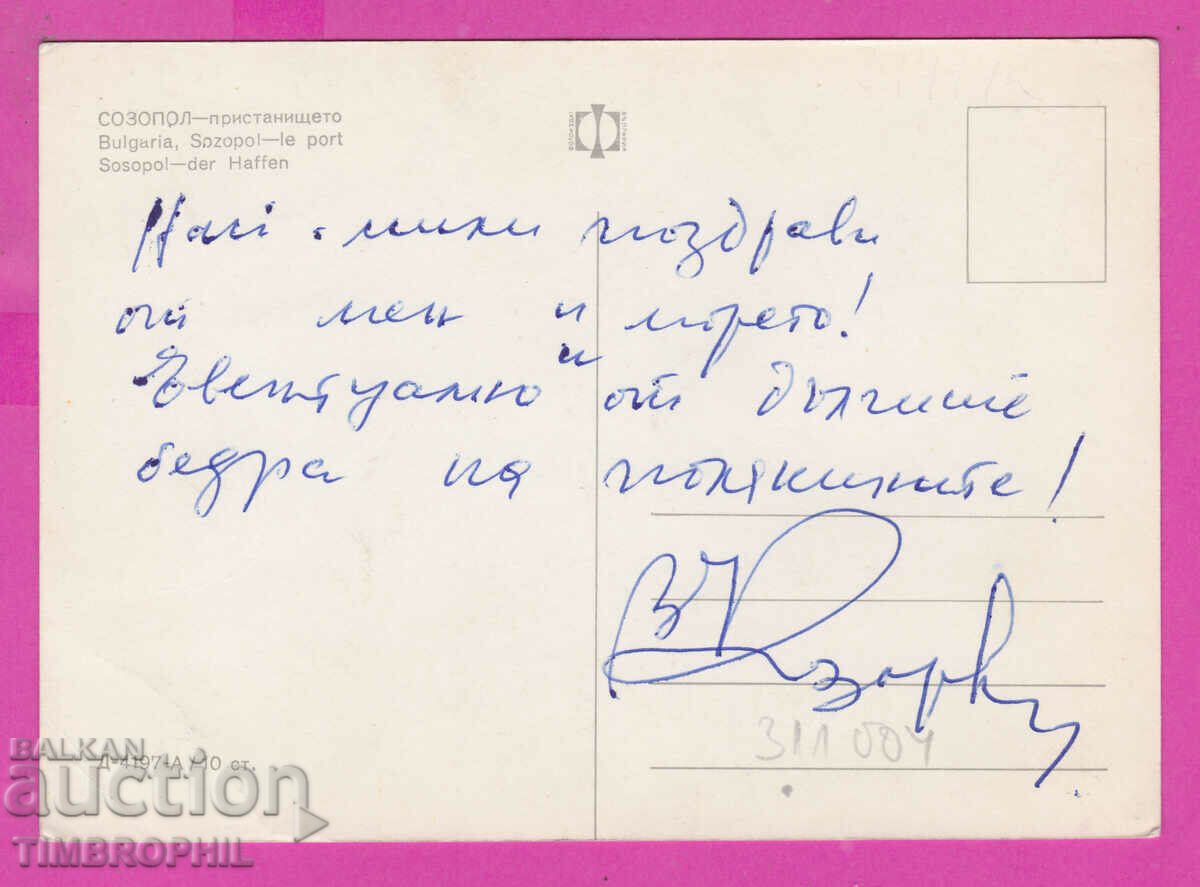 СОЗОПОЛ—пристанището
Bulgaria, Sozopol—le port
Sosopol—der Haffen
Най-мили поздрави
от мен и морето!
Евентуално и от дългите
бедра на полякините!
311004
Д-4197-А / 10 ст.
BALKAN
auction
TIMBROPHIL